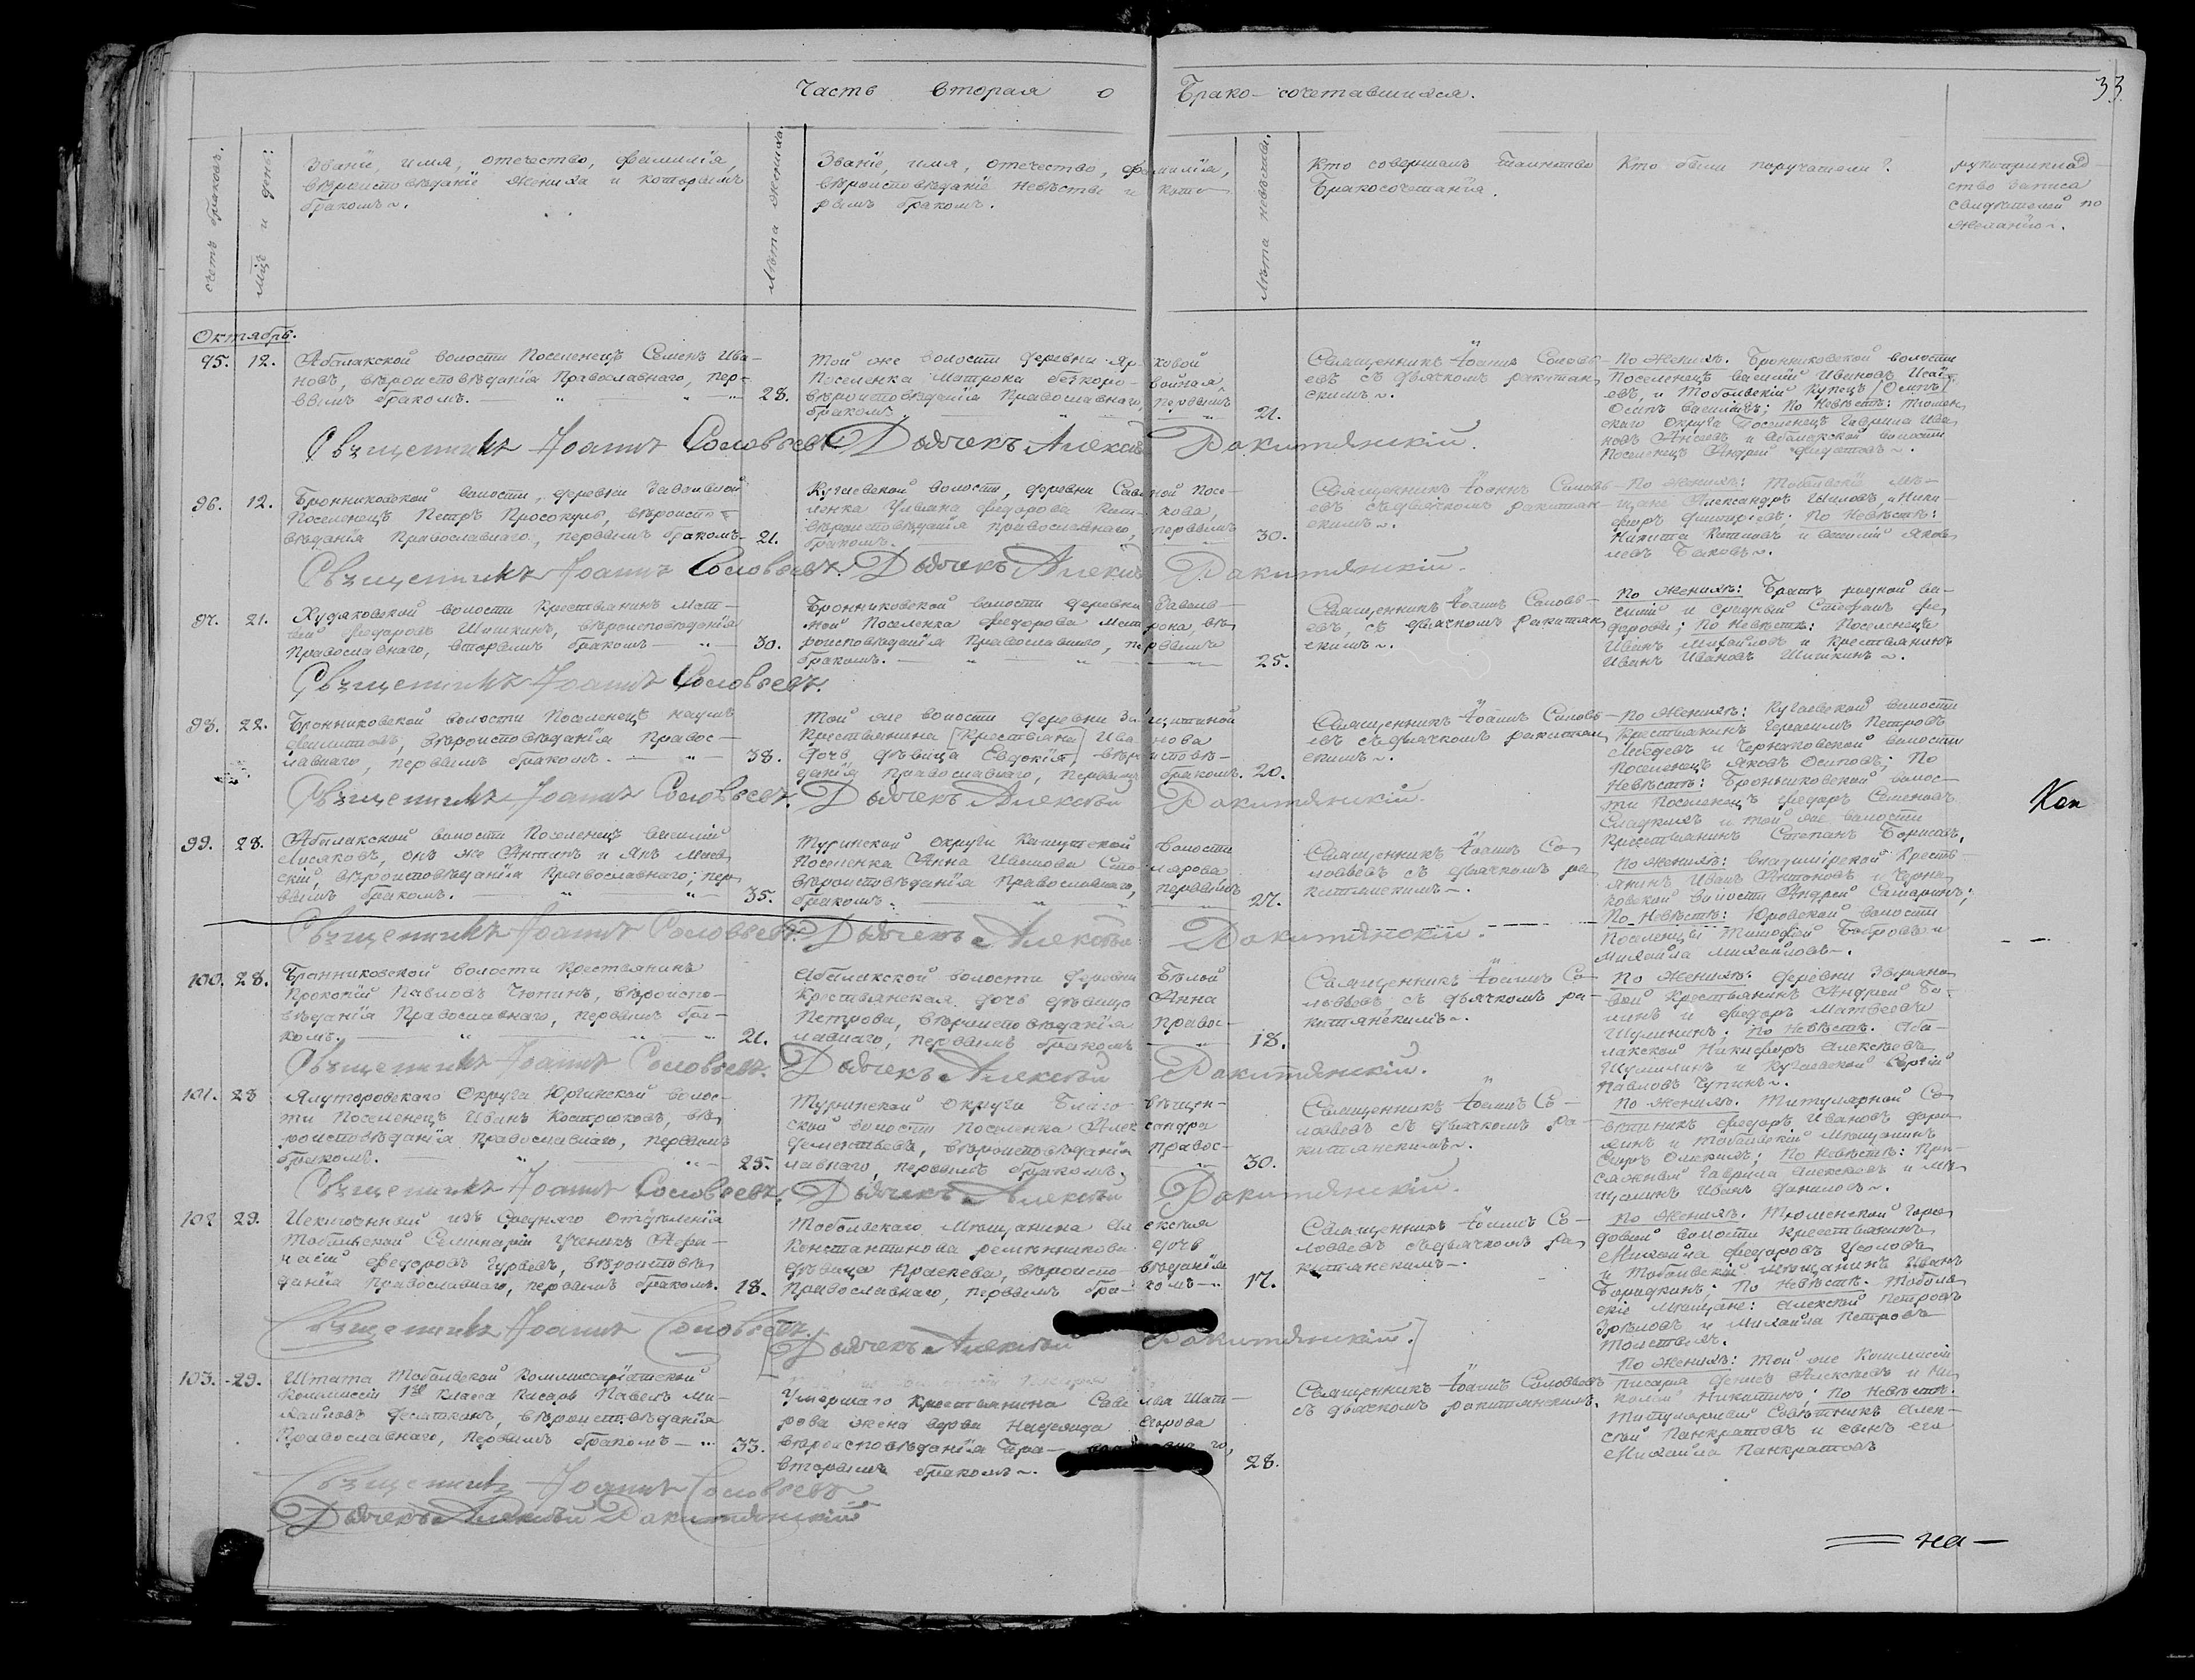 33
Часть вторая о Брако-сочетавшихся.
счетъ браковъ.
Мцъ и день:
Званіе, имя, отечество, фамилія,
вѣроисповѣданіе жениха и которымъ
бракомъ.
Лѣта жениха.
Званіе, имя, отечество, фамилія,
вѣроисповѣданіе невѣсты и кото-
рымъ бракомъ.
Лѣта невѣсты.
Кто совершалъ таинство
Бракосочетанія.
Кто были поручители?
рукоприклад-
ство записа
свидѣтелей по
желанію.
Октябрь.
95. 12.
Абалакской волости Поселенецъ Семенъ Ива-
новъ, вѣроисповѣданія Православнаго, пер-
вымъ бракомъ. 28.
Той же волости деревни Яр-ковой
Поселенка Матрона безкоро-войная,
вѣроисповѣданія Православнаго, первымъ
бракомъ 21.
Священникъ Іоаннъ Соловь-
евъ съ дьячкомъ ракитян-
скимъ.
По женихѣ. Бронниковской волости
Поселенецъ Василій Ивановъ Исай
евъ, и Тобольскій купецъ (Осипъ)
Осипъ Васильевъ; По Невѣстѣ: Тюмен
скаго Округа Поселенецъ Гаврила Ива
новъ и Абалакской волости
Поселенецъ Андрей Федотовъ.
Священникъ Іоаннъ Соловьевъ. Дьячекъ Алексѣй Ракитянскій.
96. 12.
Бронниковской волости, деревни
Поселенецъ Петръ Просокуръ, вѣроиспо-
вѣданія Православнаго, первымъ бракомъ 21.
Кугаевской волости, деревни Поселенка Ульяна Федорова
вѣроисповѣданія православнаго, первымъ
бракомъ. 30.
Священникъ Іоаннъ Соловь-
евъ съ дьячкомъ ракитян-
скимъ.
По женихѣ: Тобольскіе мѣ-
щане Александръ и Ники-
форъ Дмитріевъ; По Невѣстѣ:
Никита и Василій Яков
левъ Быковъ.
Священникъ Іоаннъ Соловьевъ. Дьячекъ Алексѣй Ракитянскій.
97. 21.
Худяковской волости Крестьянинъ Мат-
вей Федоровъ Шишкинъ, вѣроисповѣданія
Православнаго, вторымъ бракомъ 30.
Бронниковской волости деревни
Поселенка Федорова Матрона, вѣ
роисповѣданія Православнаго, первымъ
бракомъ. 25.
Священникъ Іоаннъ Соловь-
евъ, съ дьячкомъ ракитян
скимъ.
По женихѣ: Братъ родной Ва-
силій и сродный Стефанъ Фе
доровы; По Невѣстѣ: Поселенецъ
Иванъ Михайловъ и крестьянинъ
Иванъ Ивановъ Шишкинъ.
Священникъ Іоаннъ Соловьевъ.
98. 22.
Бронниковской волости Поселенецъ Наумъ
Филиповъ, вѣроисповѣданія Правос-
лавнаго, первымъ бракомъ. 38.
Той же волости деревни
Крестьянина [Крестьяна] Иванова
дочь, дѣвица Евдокія, вѣроисповѣ-
данія православнаго, первымъ бракомъ. 20.
Священникъ Іоаннъ Соловь-
евъ съ дьячкомъ ракитян
скимъ.
По женихѣ: Кугаевской волости
Крестьянинъ Герасимъ Петровъ
Лебедевъ и Черноковской волости
Поселенецъ Яковъ Осиповъ; По
Невѣстѣ: Бронниковской волос-
ти Поселенецъ Федоръ Семеновъ
и той же волости
Крестьянинъ Степанъ Борисовъ.
Священникъ Іоаннъ Соловьевъ. Дьячекъ Алексѣй Ракитянскій.
99. 28.
Абалакской волости Поселенецъ Василій
Лисяковъ, онъ же Антипъ и Янъ
скій, вѣроисповѣданія Православнаго; пер
вымъ бракомъ. 35.
Туринской округи волости
Поселенка Анна Иванова Столярова
вѣроисповѣданія Православнаго, первымъ
бракомъ. 27.
Священникъ Іоаннъ Со
ловьевъ съ дьячкомъ ра
китянскимъ.
По женихѣ: Владимірской Кресть-
янинъ Иванъ Антоновъ и Черно
ковской волости Андрей Самаринъ;
По Невѣстѣ: Юровской волости
Поселенцы Тимофей Бобровъ и
Михайла Михайловъ.
Священникъ Іоаннъ Соловьевъ. Дьячекъ Алексѣй Ракитянскій.
100. 28.
Бронниковской волости Крестьянинъ
Прокопій Павловъ Чупинъ, вѣроиспо-
вѣданія Православнаго, первымъ бра-
комъ. 21.
Абалакской волости деревни Бѣлой
Крестьянская дочь дѣвица Анна
Петрова, вѣроисповѣданія правос-
лавнаго, первымъ бракомъ 18.
Священникъ Іоаннъ Со
ловьевъ съ дьячкомъ ра-
китянскимъ.
По женихѣ: деревни
Крестьянинъ Андрей
и Федоръ Матвѣевъ
По Невѣстѣ. Аба-
лакской Никифоръ Алексѣевъ
и Кугаевской Сергій
Павловъ Чупинъ.
Священникъ Іоаннъ Соловьевъ. Дьячекъ Алексѣй Ракитянскій.
101. 28
Ялуторовскаго Округа Юргинской волос-
ти Поселенецъ Иванъ Костроковъ, вѣ
роисповѣданія Православнаго, первымъ
бракомъ. 25.
Туринской округи Благо-вѣщен-
ской волости Поселенка Александра
Дементьева, вѣроисповѣданія правос-
лавнаго, первымъ бракомъ. 30.
Священникъ Іоаннъ Со-
ловьевъ съ дьячкомъ ра-
китянскимъ.
По женихѣ. Титулярной Со
вѣтникъ Федоръ Ивановъ
и Тобольскій Мѣщанинъ
По Невѣстѣ: При-
сяжный Гаврила Алексѣевъ и мѣ
щанинъ Иванъ Даниловъ.
Священникъ Іоаннъ Соловьевъ. Дьячекъ Алексѣй Ракитянскій.
102 29.
Исключенный изъ Средняго отдѣленія
Тобольской Семинаріи ученикъ Афа-
насій Федоровъ Гурьевъ, вѣроисповѣ
данія Православнаго, первымъ бракомъ. 18.
Тобольскаго Мѣщанина Алексѣя
Константинова дочь
дѣвица Праскева, вѣроиспо-вѣданія
Православнаго, первымъ бра-комъ 17.
Священникъ Іоаннъ Со-
ловьевъ съ дьячкомъ ра
китянскимъ.
По женихѣ. Тюменской Горо
довой волости Крестьянинъ
Михайла Федоровъ
и Тобольскій мѣщанинъ Иванъ
По Невѣстѣ. Тоболь
скіе Мѣщане: Алексѣй Петровъ
и Михайла Петровъ
Священникъ Іоаннъ Соловьевъ.
Дьячекъ Алексѣй Ракитянскій.
103. 29.
Штата Тобольской Коммиссаріатской
Коммиссіи 1го класса писарь Павелъ Ми-
хайловъ вѣроисповѣданія
Православнаго, первымъ бракомъ 33.
Умершаго Крестьянина Шат-
рова жена вдова Надежда Егорова
вѣроисповѣданія
вторымъ бракомъ. 28.
Священникъ Іоаннъ Соловьевъ
съ дьячкомъ ракитянскимъ.
По женихѣ: Той же Коммиссіи
писаря Денисъ Алексѣевъ и Ни
колай Никитинъ; По Невѣстѣ.
Титулярный Совѣтникъ Алек-
сѣй Панкратовъ и сынъ его
Михайла Панкратовъ
Священникъ Іоаннъ Соловьевъ
Дьячекъ Алексѣй Ракитянскій
на